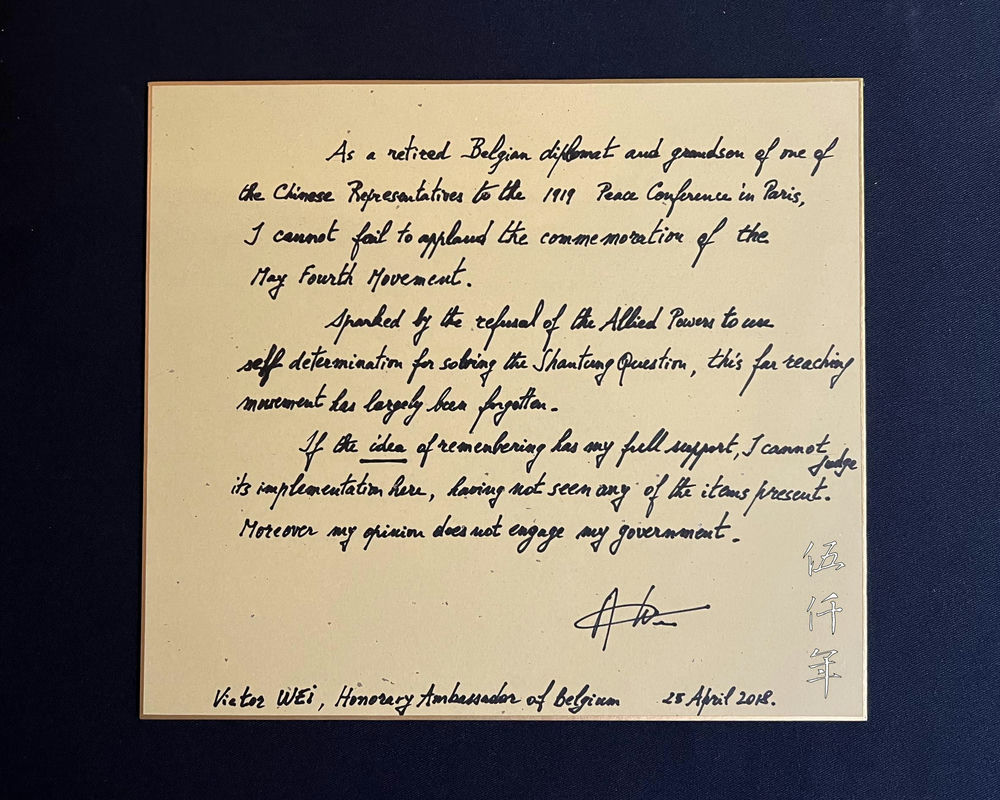 As a retired Belgian diplomat and grandson of one of
the Chinese Representatives to the 1919 Peace Conference in Paris,
I cannot fail to applaud the commemoration of the
May Fourth Movement.
Sparked by the refusal of the Allied Powers to use
self determination for solving the Shantung Question, this far reaching
movement has largely been forgotten.
If the idea of remembering has my full support, I cannot judge
its implementation here, having not seen any of the items present.
Moreover my opinion does not engage my government.
Victor WEI, Honorary Ambassador of Belgium 25 April 2018.
伍仟年